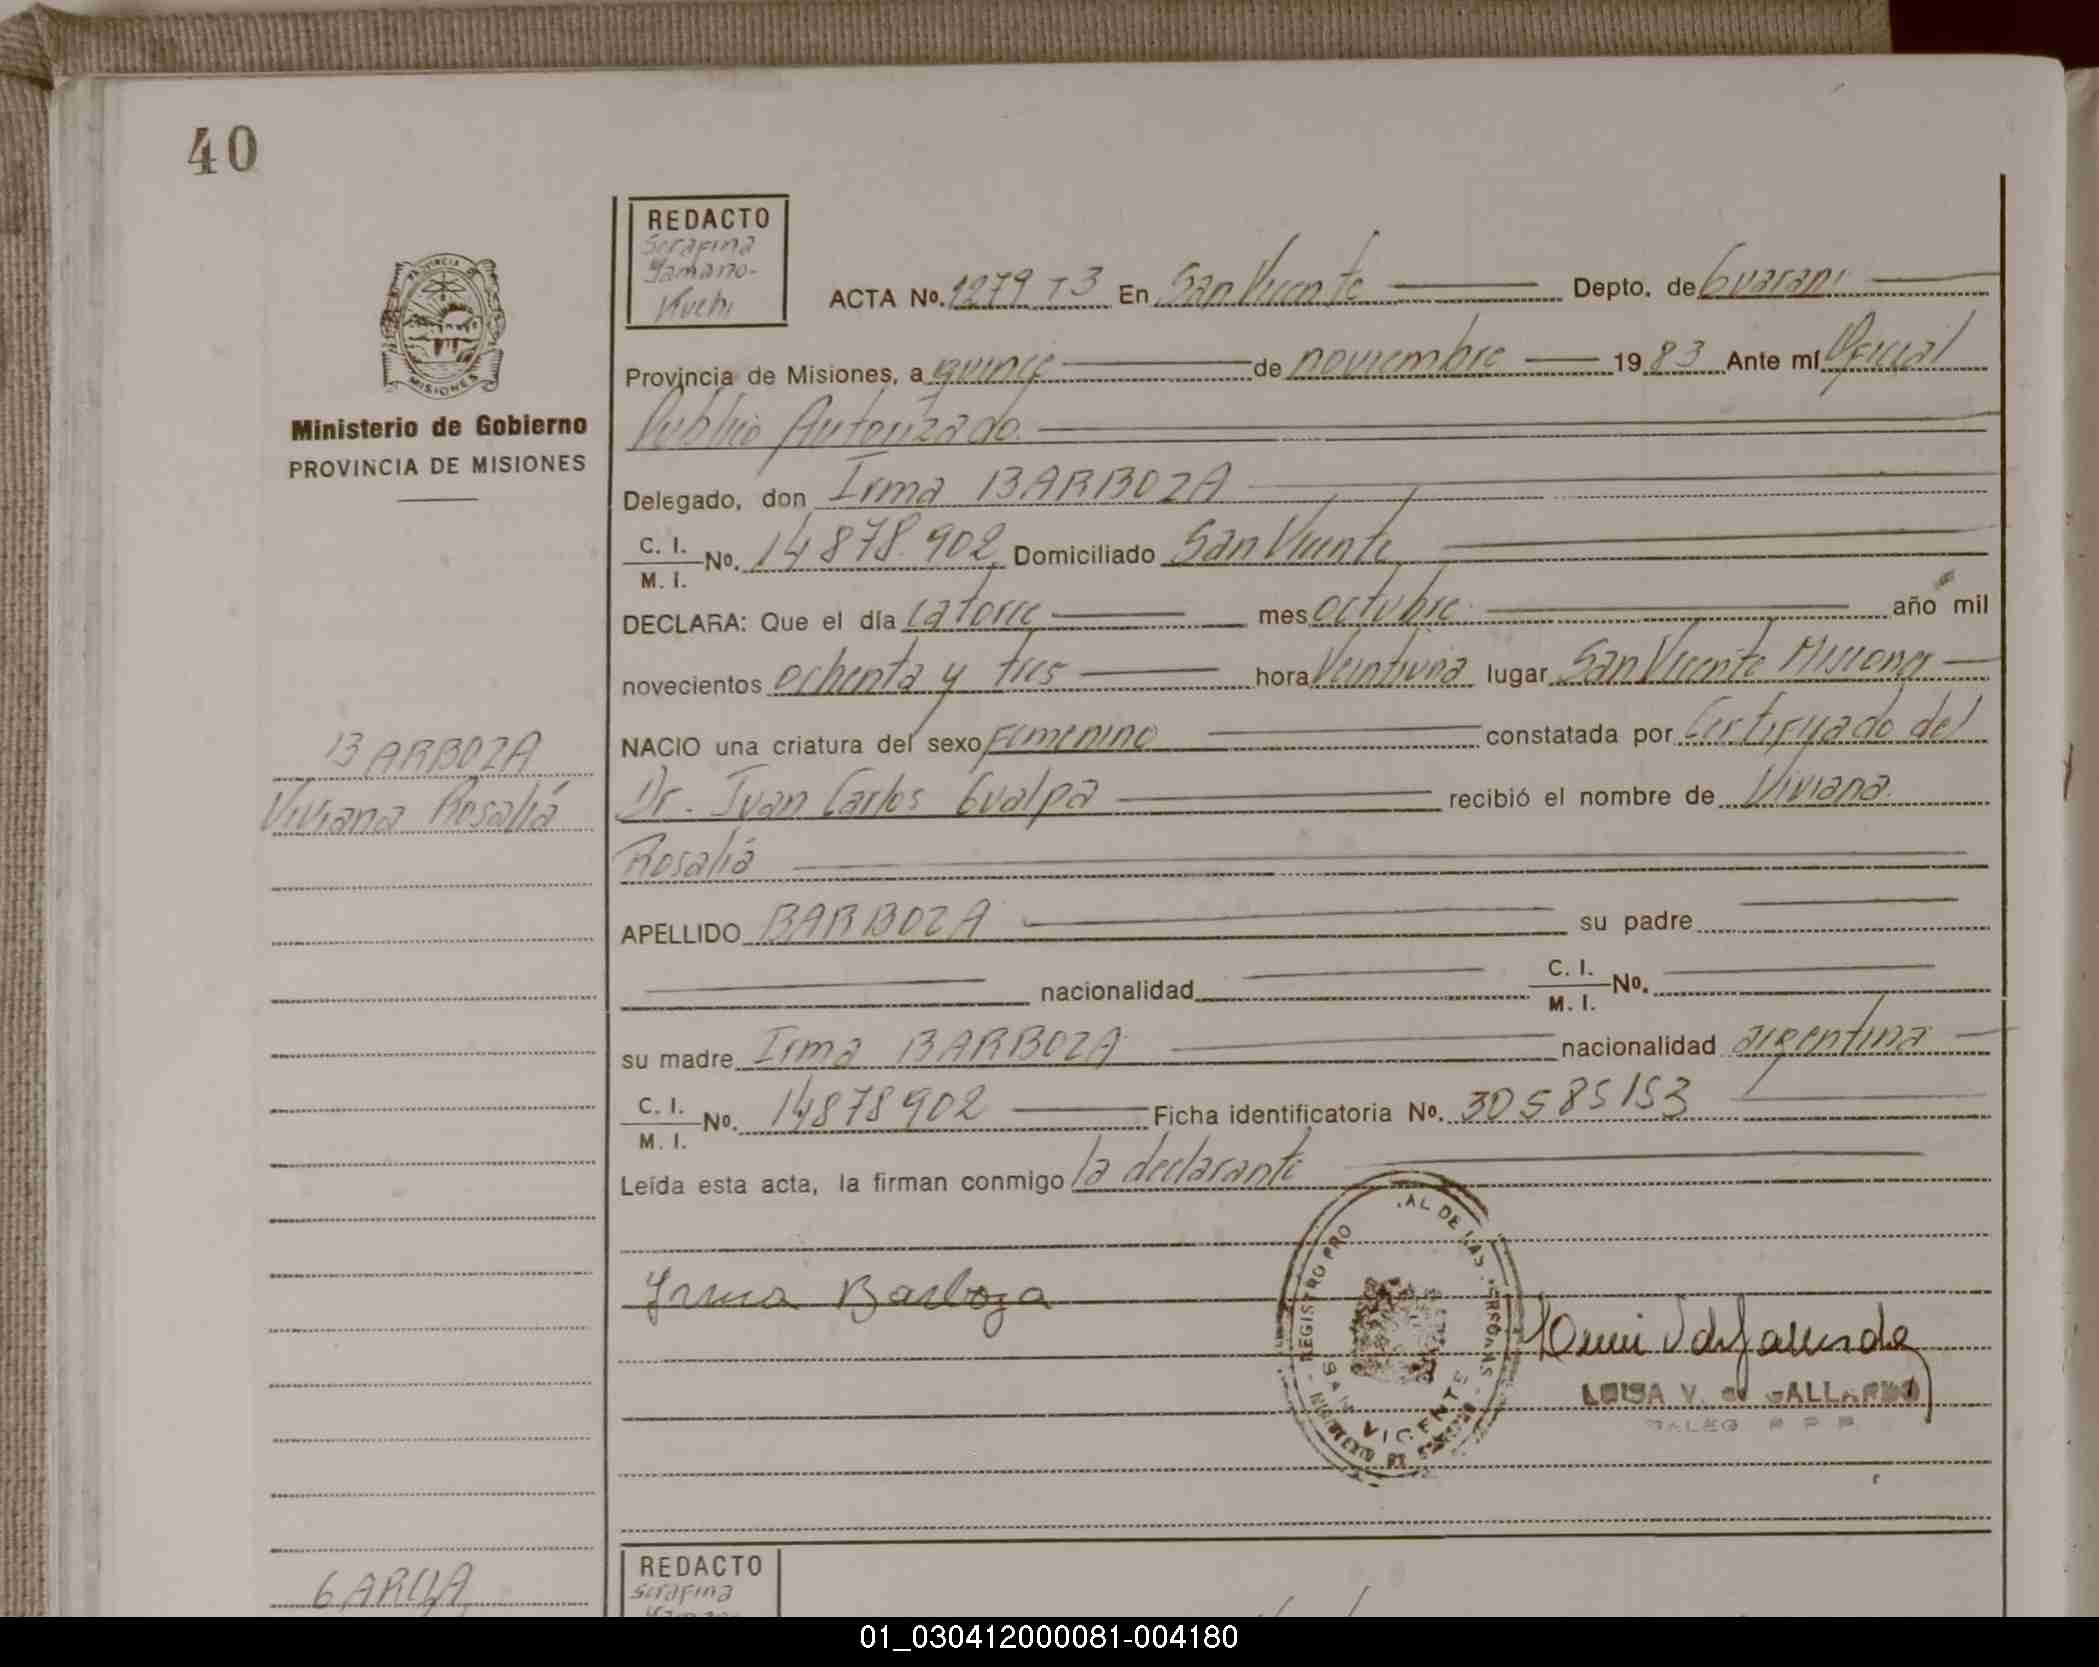 40
REDACTO
Serafina
Yamano-
Kuchi
ACTA No. 1279 T3 En San Vicente Depto. de Guarani
Provincia de Misiones, a quince de noviembre 1983 Ante mí Oficial
Publico Autorizado.
Delegado, don Irma BARBOZA
C. I.
M. I. No. 14878.902 Domiciliado San Vicente
DECLARA: Que el día catorce mes octubre año mil
novecientos ochenta y tres hora Veintiuna lugar San Vicente Misiones
NACIO una criatura del sexo Femenino constatada por Certificado del
Dr. Juan Carlos Gualpa recibió el nombre de Viviana
Rosaliá
APELLIDO BARBOZA su padre
nacionalidad C. I.
M. I. No.
su madre Irma BARBOZA nacionalidad argentina
C. I.
M. I. No. 14878902 Ficha identificatoria No. 30585153
Leída esta acta, la firman conmigo la declarante
Irma Barboza
REGISTRO PRO AL DE LAS PERSONAS
SAN VICENTE
LUISA V. de GALLARDO
PROVINCIA DE
MISIONES
Ministerio de Gobierno
PROVINCIA DE MISIONES
BARBOZA
Viviana Rosaliá
GARCIA
REDACTO
Serafina
01_030412000081-004180